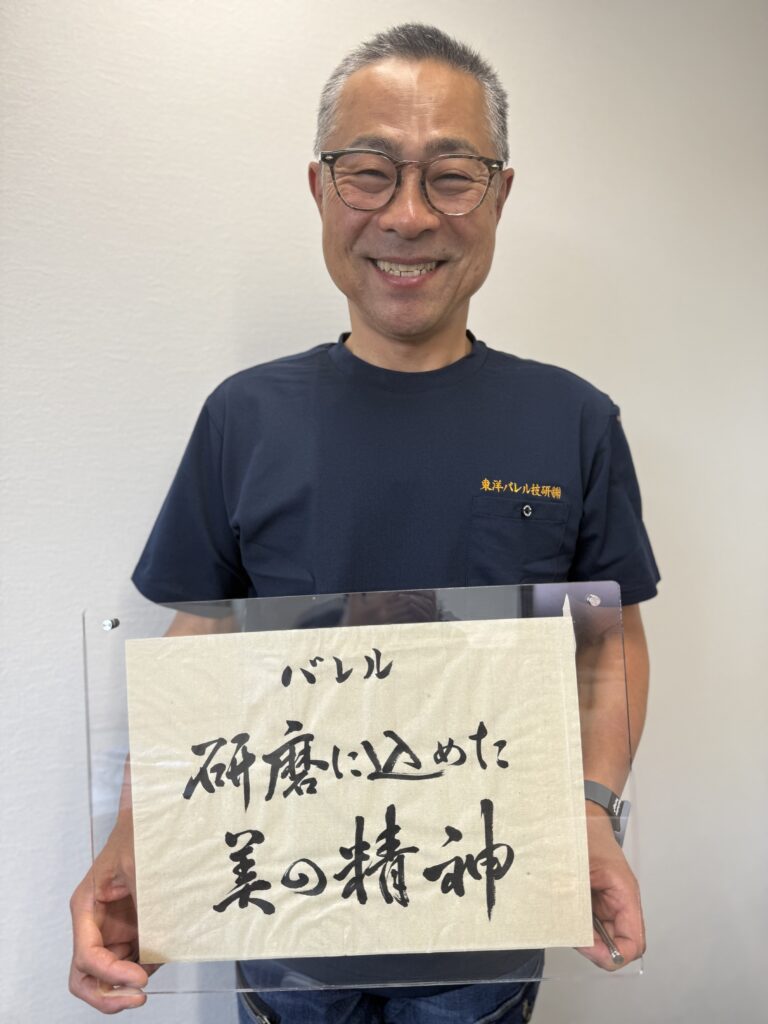 東洋バレル技研㈱
バレル
研磨に込めた
美の精神